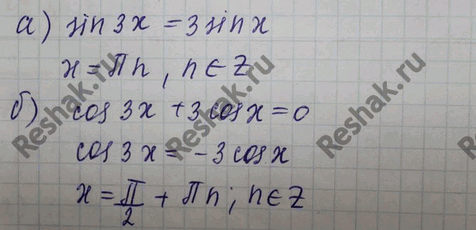 а) sin 3x = 3 sin x
x = πn, n ∈ Z
б) cos 3x + 3 cos x = 0
cos 3x = -3 cos x
x = π/2 + πn; n ∈ Z
Reshak.ru
Reshak.ru
Reshak.ru
Reshak.ru